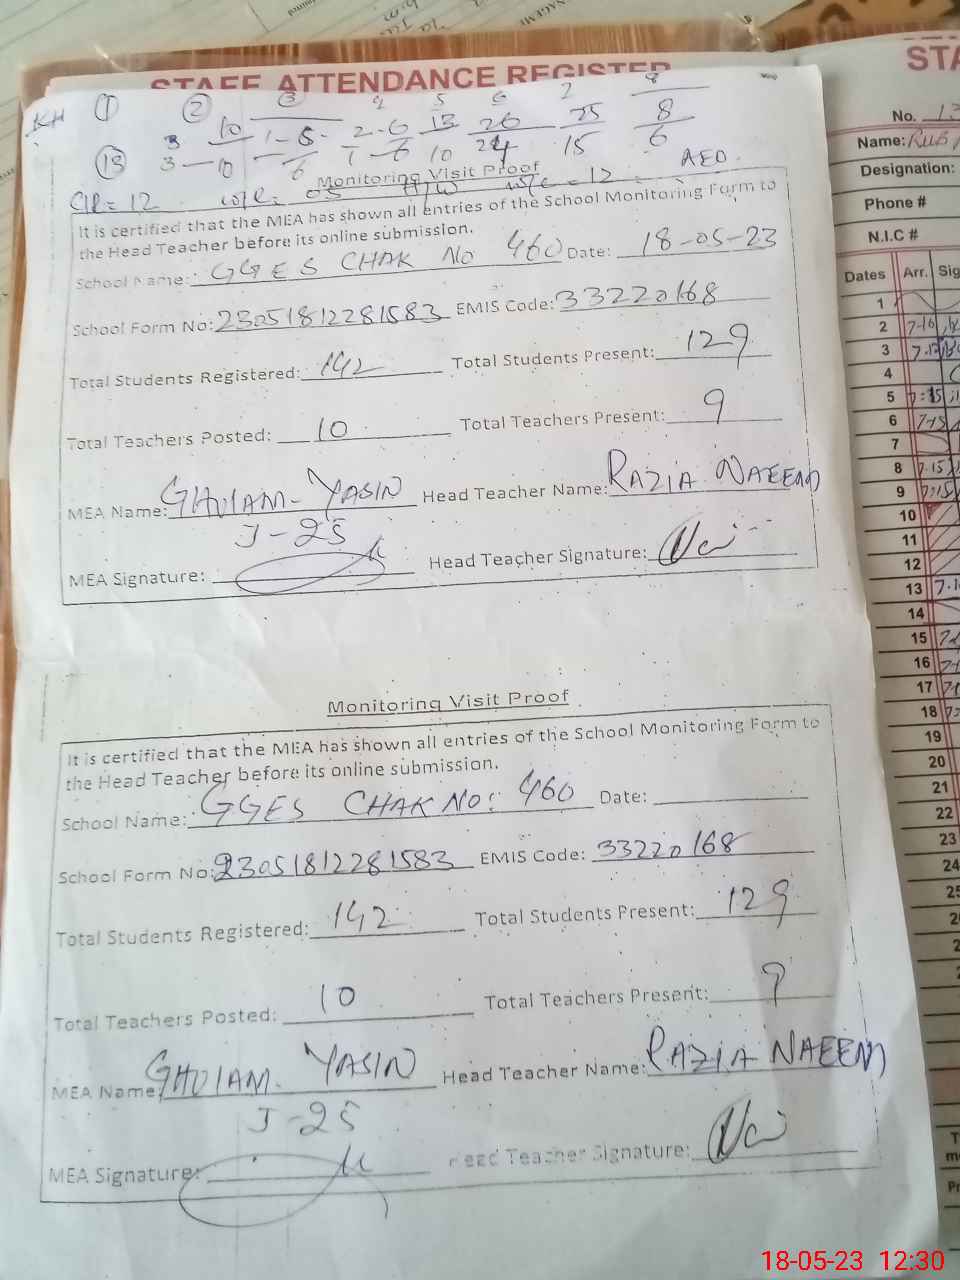 STAFF ATTENDANCE REGISTER
KH 1 2 3 4 5 6 7 8
13 3 10 1-5 2-6 13 26 25 8
3-10 6 1-6 10 24 15 6
AEO.
Monitoring Visit Proof
CIR=12 = 05 = 12
It is certified that the MEA has shown all entries of the School Monitoring Form to
the Head Teacher before its online submission.
School Name: GGES CHAK No 460 Date: 18-05-23
School Form No: 23051812281583 EMIS Code: 33220168
Total Students Registered: 142 Total Students Present: 129
Total Teachers Posted: 10 Total Teachers Present: 9
MEA Name: GHULAM-YASIN Head Teacher Name: RAZIA NAEEM
J-25
MEA Signature: Head Teacher Signature:
Monitoring Visit Proof
It is certified that the MEA has shown all entries of the School Monitoring Form to
the Head Teacher before its online submission.
School Name: GGES CHAK NO: 460 Date:
School Form No: 23051812281583 EMIS Code: 33220168
Total Students Registered: 142 Total Students Present: 129
Total Teachers Posted: 10 Total Teachers Present: 9
MEA Name: GHULAM- YASIN Head Teacher Name: RAZIA NAEEM
J-25
MEA Signature: Head Teacher Signature:
STA
No. 13
Name: RUB
Designation:
Phone #
N.I.C #
Dates Arr. Sig
1
2 7-10
3 7.15
4
5 7:15
6 7-15
7
8 7.15
9 7:15
10
11
12
13 7.1
14
15
16
17
18
19
20
21
22
23
24
18-05-23 12:30